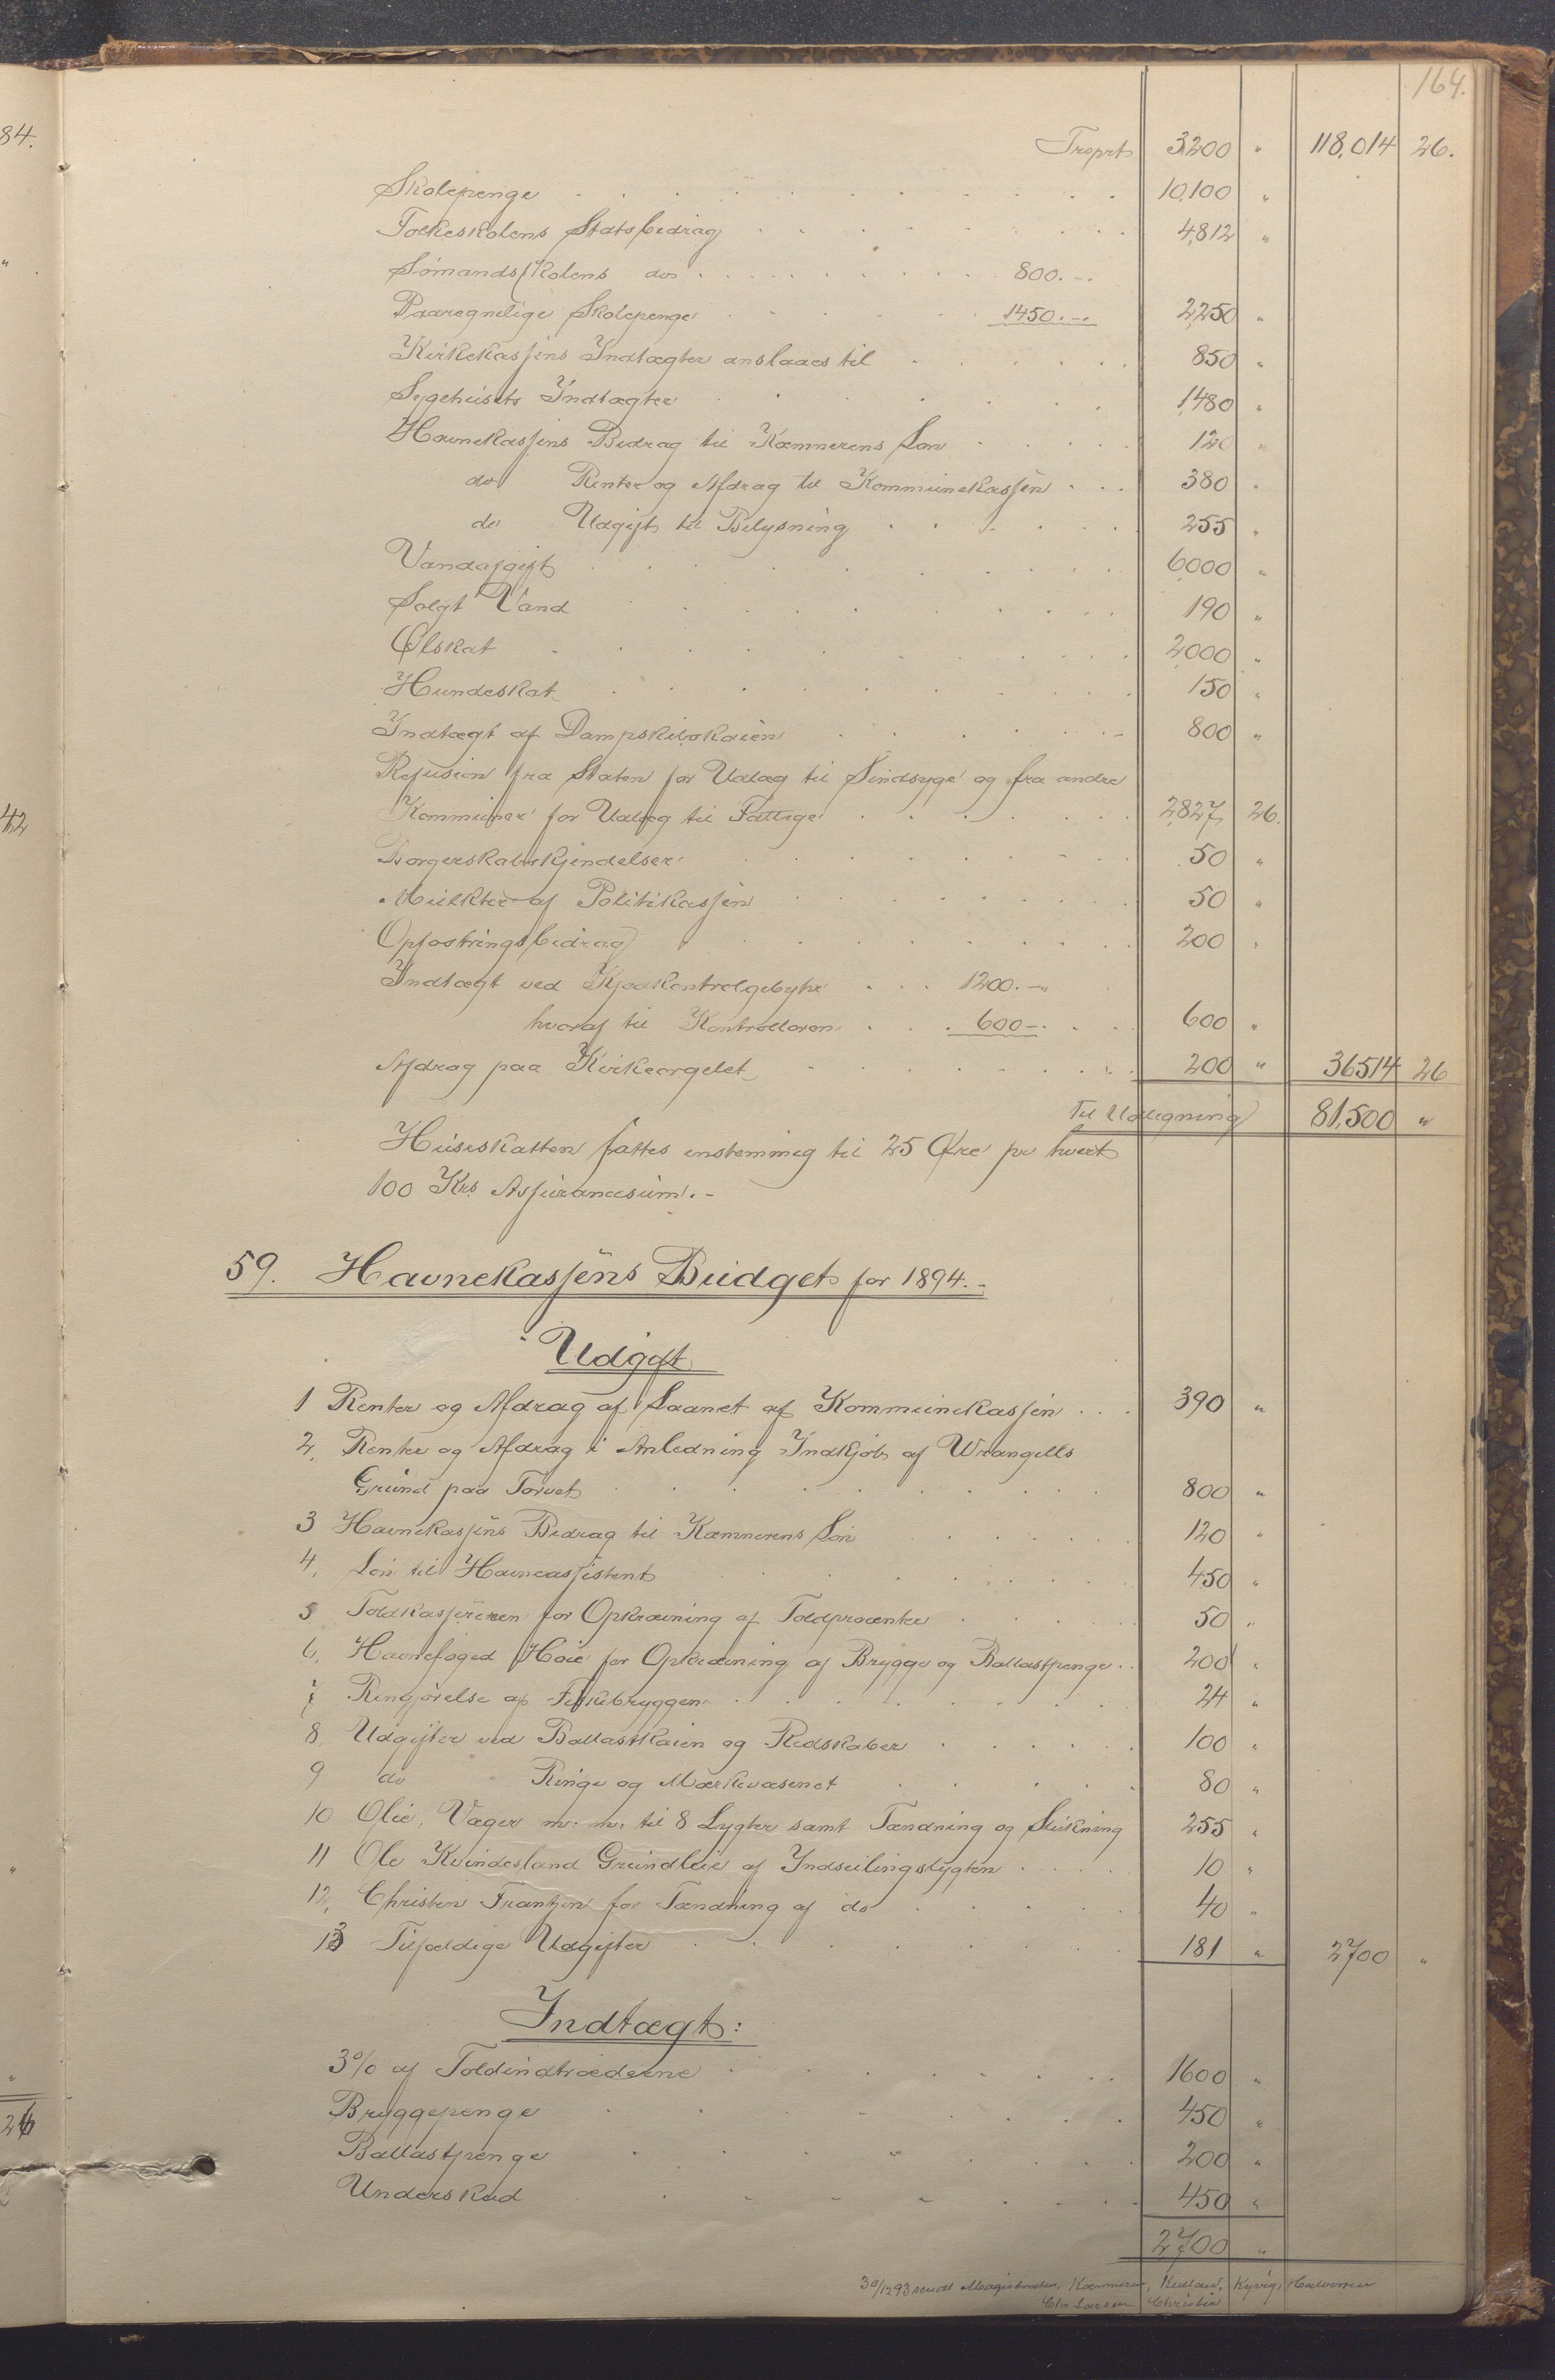 164.
84.
Trsprt 3200 " 118,014 26.
Skolepenge 10,100 "
Folkeskolens Statsbidrag 4,812 "
Sømandsskolens do 800.-
Paaregnelige Skolepenge 1450.- 2,250 "
Kirkekassens Indtægter anslaaes til 850 "
Sygehusets Indtægter 1,480 "
Havnekassens Bidrag til Kæmnerens Løn 120 "
do Renter og Afdrag til Kommunekassen 380 "
do Udgift til Belysning 255 "
Vandafgift 6000 "
Solgt Vand 190 "
Ølskat 2,000 "
Hundeskat 150 "
Indtægt af Dampskibskaien 800 "
Refusion fra Staten for Udlæg til Sindsyge og fra andre
42
Kommuner for Udlæg til Fattige 2,827 26.
Borgerskabskjendelser 50 "
Mulkter af Politikassen 50 "
Opfostringsbidrag 200 "
Indtægt ved Kjødkontrolgebyhr 1200.-
hvoraf til Kontrolløren 600- 600 "
Afdrag paa Kirkeorgelet 200 " 36514 26
Til Udligning 81,500 "
Huseskatten sattes enstemmig til 25 Øre pr hvert
100 Krs Assurancesum.-
59. Havnekassens Budget for 1894.-
Udgift
1 Renter og Afdrag af Laanet af Kommunekassen 390 "
2, Renter og Afdrag i Anledning Indkjøb af Wrangells
Grund paa Torvet 800 "
3 Havnekassens Bidrag til Kæmnerens Løn 120 "
4, Løn til Havneassistent 450 "
5 Toldkassereren for Opkrævning af Toldprocenter 50 "
6, Havnefoged Høie for Opkrævning af Brygge og Ballastpenge 200 "
7 Rengjørelse af Fiskebryggen 24 "
8, Udgifter ved Ballastkaien og Redskaber 100 "
9 do " Ringe og Mærkevæsenet 80 "
10 Olie, Væger m. m. til 8 Lygter samt Tænding og Slukning 255 "
11 Ole Kvindesland Grundleie af Indseilingslygten 10 "
12, Christen Frantzen for Tænding af do 40 "
13 Tilfældige Udgifter 181 " 2700 "
Indtægt:
3% af Toldindtræderne 1600 "
Bryggepenge 450 "
26
Ballastpenge 200 "
Underskud 450 "
2,700 "
30/12 93 sendt Magistraten, Kæmneren, Kielland, Kyvig, Halvorsen
Chr Larsen Christie